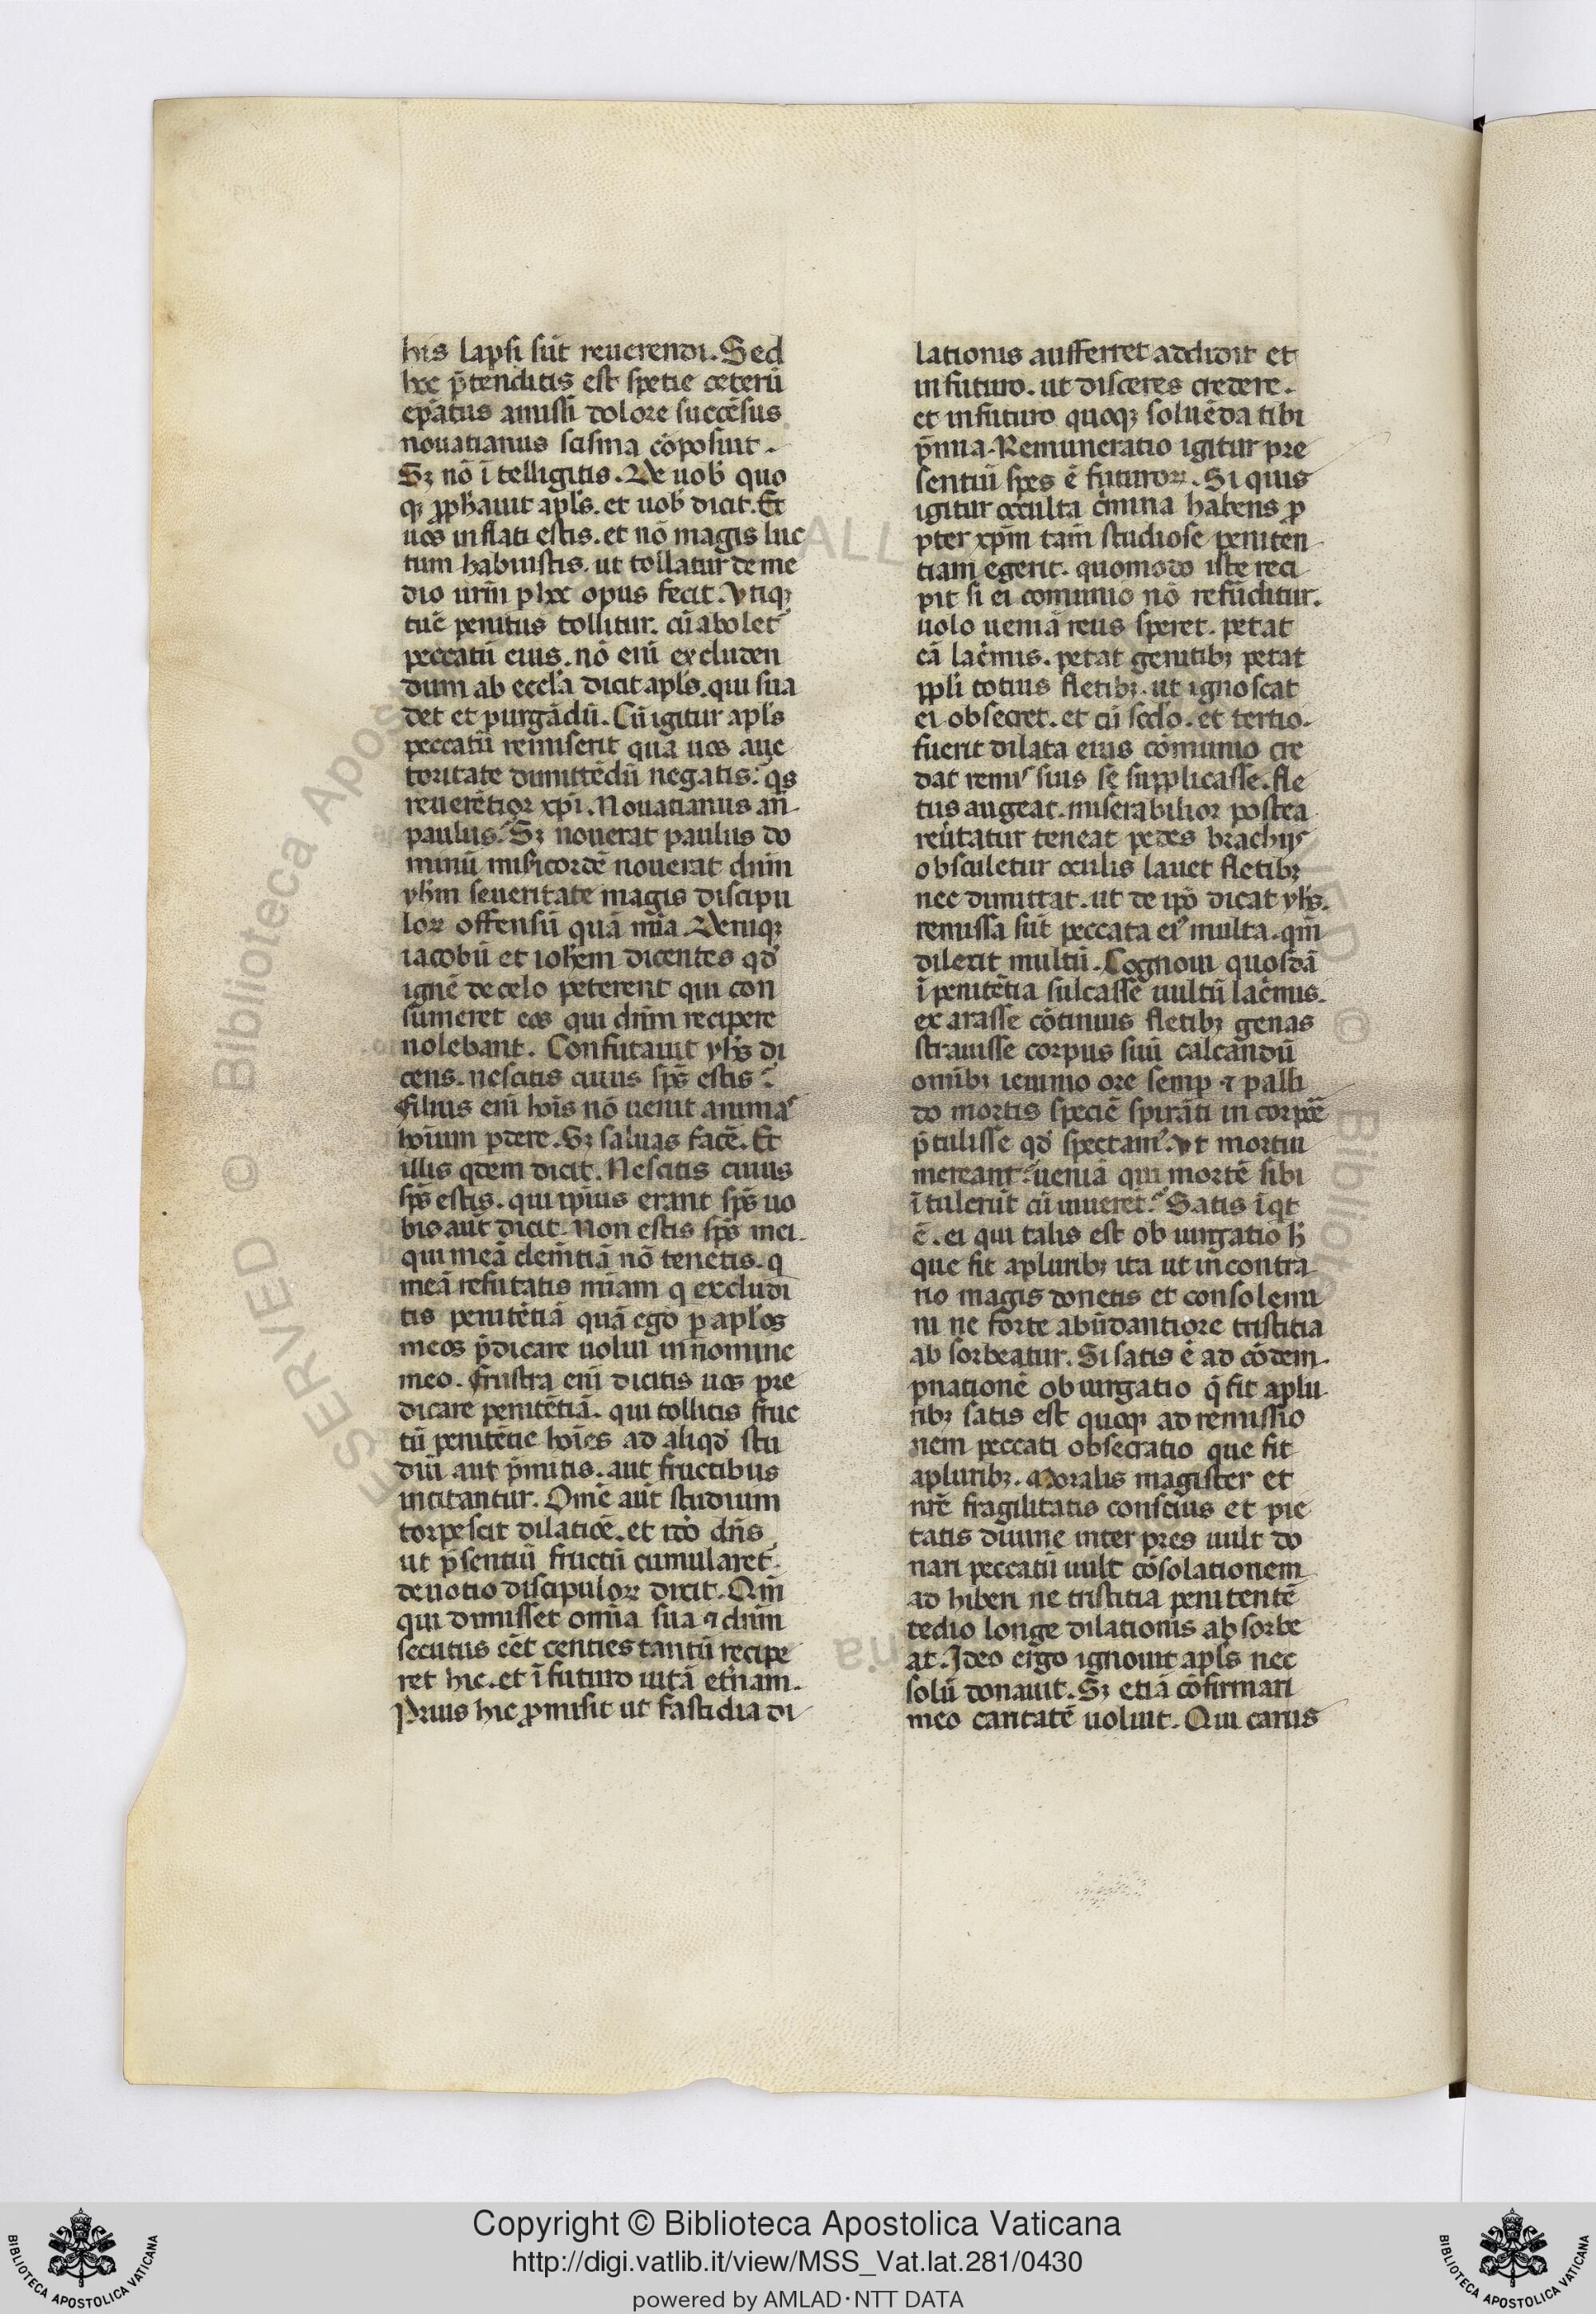 his lapsi sūt reuerendi. Sed
hec p̄tenditis est spetie ceterū
ep̄atus amissi dolore succēsus
nouatianus scisma cōposuit.
Sꝫ nō ītelligitis. De uob̄ quo
qꝫ ꝓph̄auit apl̄s. et uob̄ dicit. Et
uos inflati estis. et nō magis luc
tum habuistis. ut tollatur de me
dio ur̄m ꝑ hec opus fecit. Utiqꝫ
tūc penitus tollitur. cū abolet᷑
peccatū eius. nō eni̅ excluden
dum ab eccl̄a dicit apl̄s. qui sua
det et purgādū. Cū igitur apl̄s
peccatū remiserit qua uos auc
toritate dimittēdū negatis: q̄s
reuerētior xp̄i. Nouatianus an̄
paulus. Sꝫ nouerat paulus do
minū misicordē nouerat dn̄m
yh̄m seueritate magis discipu
loꝝ offensū quā mīa. Deniqꝫ
iacobū et ioh̄em dicentes qd̄
ignē de celo peterent qui con
sumeret eos qui dn̄m recipere
nolebant. Confutauit yh̄s di
cens. nescitis cuius sp̄s estis
filius eni̅ hoi̅s nō uenit animas
hoi̅um ꝑdere. Sꝫ saluas facē. Et
illis qdem dicit. Nescitis cuius
sp̄s estis. qui ip̄ius erant sp̄s uo
bis aūt dicit. Non estis sp̄s mei.
qui meā clem̄tiā nō tenetis. q
meā refutatis mīam q excludi
tis penitētiā quā ego ꝑ apl̄os
meos p̄dicare uolui in nomine
meo. frustra eni̅ dicitis uos pre
dicare penitētiā. qui tollitis fruc
tū penitētie hoi̅es ad aliqd̄ stu
diū aut p̄mitis. aut fructibus
incitantur. Omē aūt studium
torpescit dilatiōe. et id̄o dn̄s
ut p̄sentiū fructū cumularet
deuotio discipuloꝝ dicit. Qm̄
qui dimisset omīa sua ⁊ dn̄m
secutus eēt centies tantū recipe
ret hic. et ī futuro uitā et̄nam.
Prius hic ꝓmisit ut fastidia di
lationis aufferret addidit et
in futuro. ut disceres credere.
et in futuro quoqꝫ soluēda tibi
p̄mia. Remuneratio igitur pre
sentiū spes ē futuroꝝ. Si quis
igitur occulta c̄mina habens ꝓ
pter xp̄m tam̄ studiose peniten
tiam egerit. quomodo iste reci
pit si ei comunio nō refūditur.
uolo ueniā reus speret. petat
eā lac̄mis. petat gemitibꝫ petat
ppl̄i totius fletibꝫ. ut ignoscat
ei obsecret. et cū sc̄do. et tertio.
fuerit dilata eius cōmunio cre
dat remi᷒ sius se supplicasse. fle
tus augeat. miserabilior postea
reūtatur teneat pedes brachijs
obsculetur oculis lauet fletibꝫ
nec dimittat. ut de ip̄o dicat yh̄s.
remissa sūt peccata ei᷒ multa. qm̄
dilexit multū. Cognoui quosdā
ī penitētia sulcasse uultū lac̄mis.
exarasse cōtinuis fletibꝫ genas
strauisse corpus suū calcandū
omībꝫ ieiunio ore semꝑ ⁊ palli
do mortis speciē spirāti in corpore
p̄tulisse qd̄ spectam᷒. Ut mortui
mereant᷑ ueniā qui mortē sibi
ītulerūt cū uiueret᷑. Satis īqt
ē. ei qui talis est obiurgatio h̄
que fit a pluribꝫ ita ut in contra
rio magis donetis et consolemi
ni ne forte abūdantiore tristitia
absorbeatur. Si satis ē ad cōdem
pnationē obiurgatio q̄ fit a plu
ribꝫ satis est quoqꝫ ad remissio
nem peccati obsecratio que fit
a pluribꝫ. Moralis magister et
nr̄e fragilitatis conscius et pie
tatis diuine interpres uult do
nari peccatū uult cōsolationem
adhiberi ne tristitia penitentē
tedio longe dilationis absorbe
at. Ideo ergo ignouit apl̄s nec
solū donauit. Sꝫ etiā cōfirmari
meo caritatē uoluit. Qui carus
Copyright © Biblioteca Apostolica Vaticana
http://digi.vatlib.it/view/MSS_Vat.lat.281/0430
powered by AMLAD·NTT DATA
BIBLIOTECA APOSTOLICA VATICANA
BIBLIOTECA APOSTOLICA VATICANA